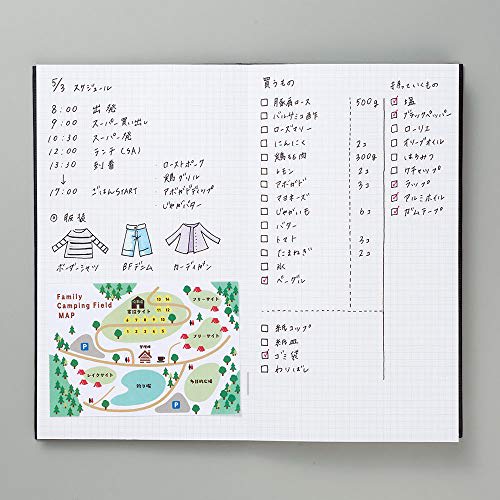 5/3 スケジュール
8:00 出発
9:00 スーパー買い出し
10:30 スーパー発
12:00 ランチ(SA)
13:30 到着
↓
17:00 ごはんSTART
ローストポーク
鶏グリル
アボカドディップ
じゃがバター
服装
ボーダーシャツ
BFデニム
カーディガン
Family
Camping Field
MAP
常設サイト
フリーサイト
13 14
11 12
7 8 9 10
1 2 3 4 5 6
管理棟
フリーサイト
レイクサイト
釣り堀
多目的広場
P
P
買うもの
豚肩ロース 500g
バルサミコ酢
ローズマリー
にんにく 2コ
鶏もも肉 300g
レモン 2コ
アボガド 3コ
マヨネーズ
じゃがいも 6コ
バター
トマト 3コ
たまねぎ 2コ
氷
ベーグル
紙コップ
紙皿
ゴミ袋
わりばし
持っていくもの
塩
ブラックペッパー
ローリエ
オリーブオイル
はちみつ
ケチャップ
ラップ
アルミホイル
ガムテープ